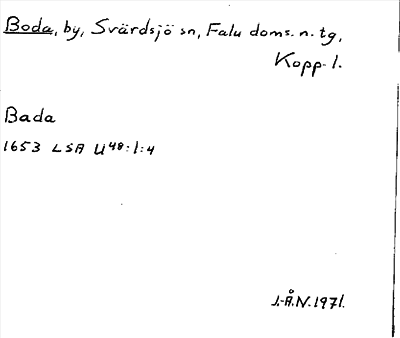 Boda, by, Svärdsjö sn, Falu doms. n. tg,
Kopp. l.
Bada
1653 LSA U48:1:4
J.-Å.N. 1971.